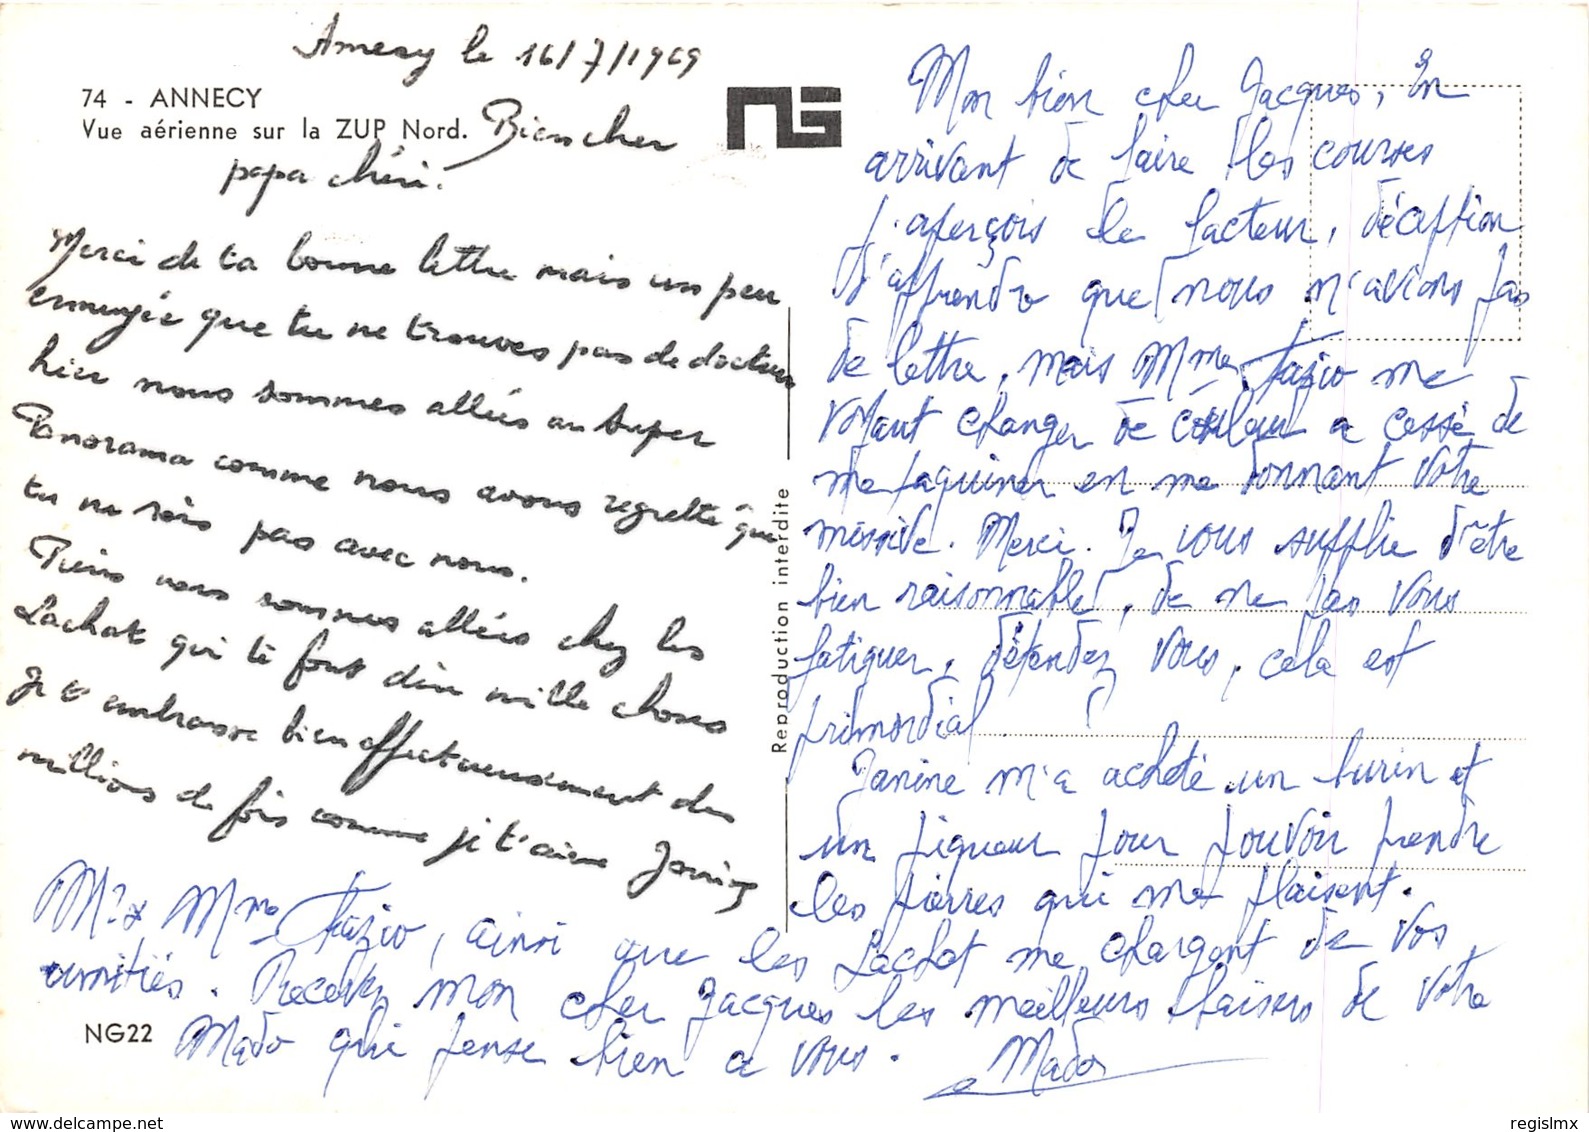 Annecy le 16/7/1969
74 - ANNECY
Vue aérienne sur la ZUP Nord.
NG
Bien cher
papa chéri.
Merci de ta bonne lettre mais un peu
ennuyée que tu ne trouves pas de docteur
hier nous sommes allées au super
Panorama comme nous avons regretté que
tu ne sois pas avec nous.
Puis nous sommes allées chez les
Lachat qui te font dire mille choses
Je t'embrasse bien affectueusement des
millions de fois comme je t'aime Janine
Reproduction interdite
Mon bien cher Jacques, En
arrivant de faire les courses
j'aperçois le facteur, déception
d'apprendre que nous n'avions pas
de lettre, mais Mme Fazio me
voyant changer de couleur a cessé de
me taquiner en me donnant votre
missive. Merci. Je vous supplie d'être
bien raisonnable, de ne pas vous
fatiguer, détendez vous, cela est
primordial
Janine m'a acheté un burin et
un piqueur pour pouvoir prendre
les pierres qui me plaisent.
Mr & Mme Fazio, ainsi que les Lachat me chargent de vos
amitiés. Recevez mon cher Jacques les meilleurs baisers de votre
Mado qui pense bien a vous. Mado
NG22
www.delcampe.net
regislmx